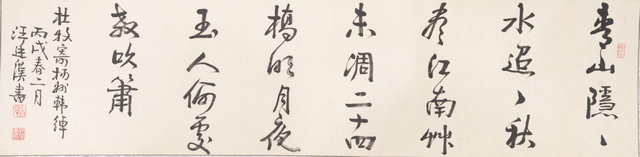 青山隱〻
水迢〻秋
盡江南艸
未凋二十四
橋明月夜
玉人何處
教吹簫
杜牧寄揚州韓綽
丙戌春二月
汪廷漢書